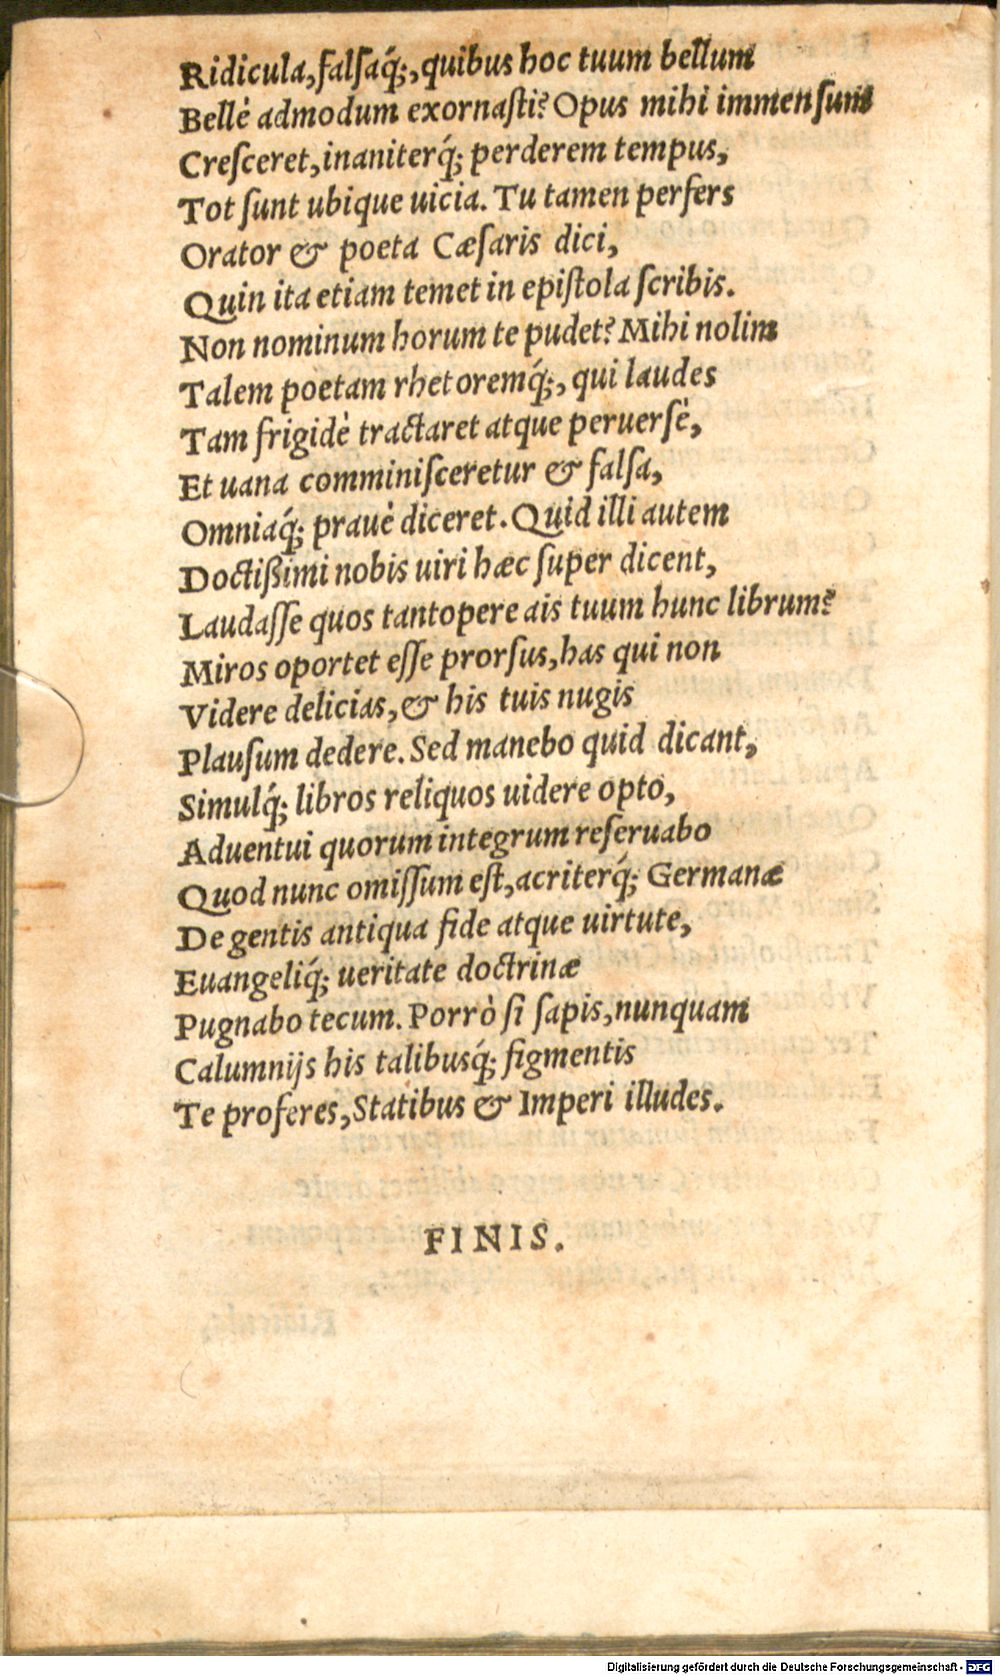 Ridicula,falsaq́;,quibus hoc tuum bellum
Bellè admodum exornaſti? Opus mihi immenſum
Creſceret,inaniterq́; perderem tempus,
Tot ſunt ubique uicia. Tu tamen perfers
Orator & poeta Cæſaris dici,
Quin ita etiam temet in epiſtola ſcribis.
Non nominum horum te pudet? Mihi nolim
Talem poetam rhetoremq́;, qui laudes
Tam frigidè tractaret atque peruerſè,
Et uana comminiſceretur & falſa,
Omniaq́; prauè diceret. Quid illi autem
Doctißimi nobis uiri hæc ſuper dicent,
Laudaſſe quos tantopere ais tuum hunc librum?
Miros oportet eſſe prorſus,has qui non
Videre delicias,& his tuis nugis
Plauſum dedere. Sed manebo quid dicant,
Simulq́; libros reliquos uidere opto,
Aduentui quorum integrum reſeruabo
Quod nunc omiſſum eſt,acriterq́; Germanæ
De gentis antiqua fide atque uirtute,
Euangeliq́; ueritate doctrinæ
Pugnabo tecum. Porrò ſi ſapis,nunquam
Calumnijs his talibusq́; figmentis
Te proferes,Statibus & Imperi illudes.
FINIS.
Digitalisierung gefördert durch die Deutsche Forschungsgemeinschaft - DFG